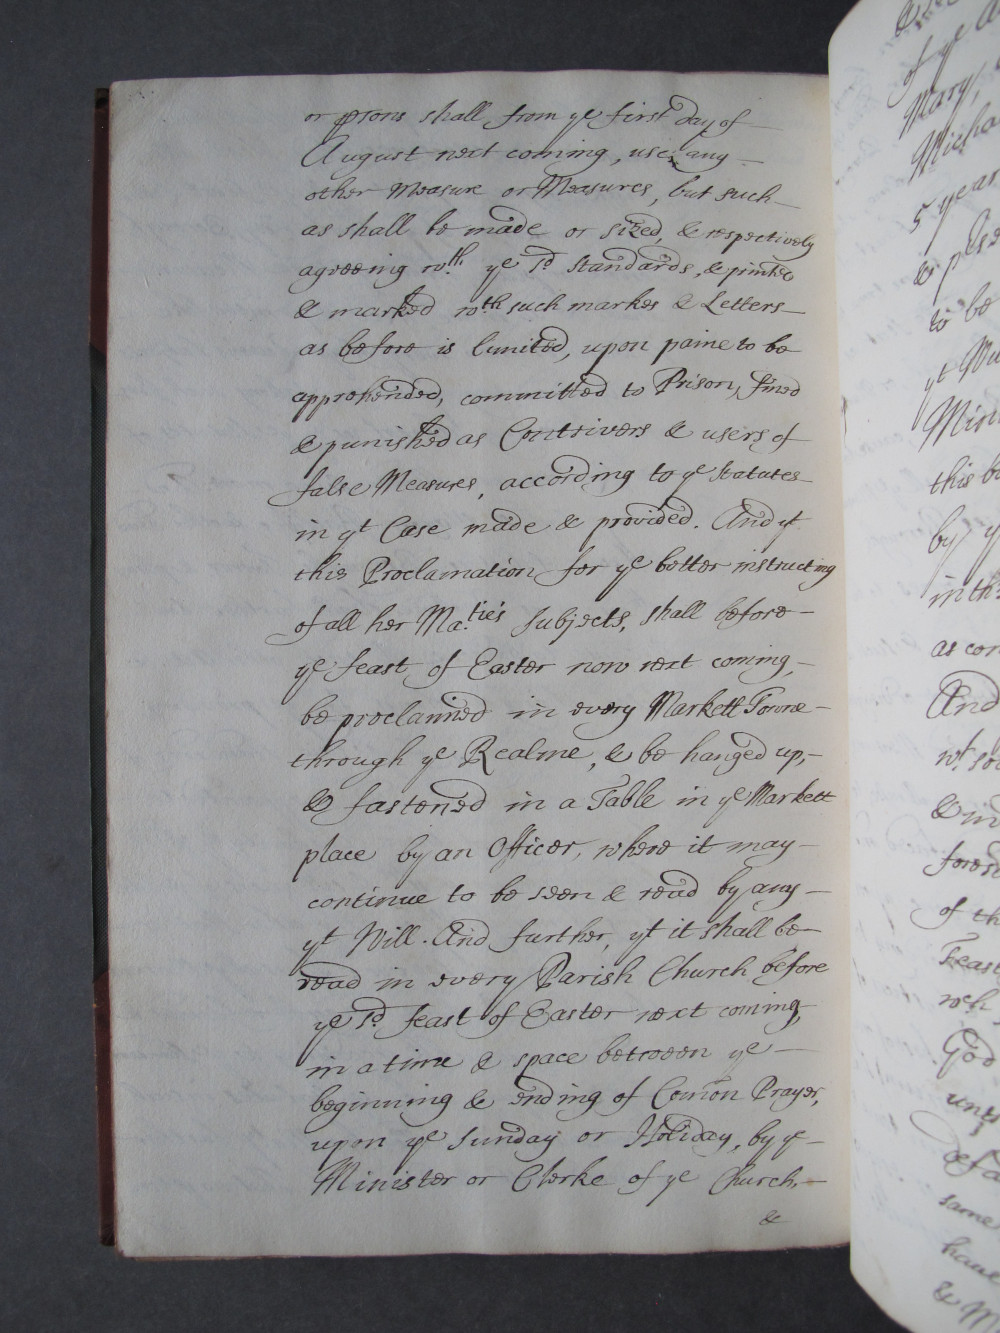 or psons shall, from ye first day of
August next coming, use any
other Measure or Measures, but such
as shall be made or sized, & respectively
agreeing wth. ye sd. Standards, & printed
& marked wth such markes & Letters
as before is limited, upon paine to be
apprehended, committed to Prison, fined
& punished as Contrivers & users of
false Measures, according to ye Statutes
in yt Case made & provided. And yt
this Proclamation for ye better instructing
of all her Ma.ties Subjects, shall before
ye feast of Easter now next coming,
be proclaimed in every Markett Towne
through ye Realme, & be hanged up,
& fastened in a Table in ye Markett
place by an Officer, where it may
continue to be seen & read by any
yt Will. And further, yt it shall be
read in every Parish Church before
ye sd. feast of Easter next coming,
in a time & space between ye
beginning & ending of Com̃on Prayer,
upon ye Sunday or Holiday, by ye
Minister or Clerke of ye Church,
&
of ye
Mary,
5 year
to be
this
by y
in th
as con
And
of th
Feast
wch
God
same
have